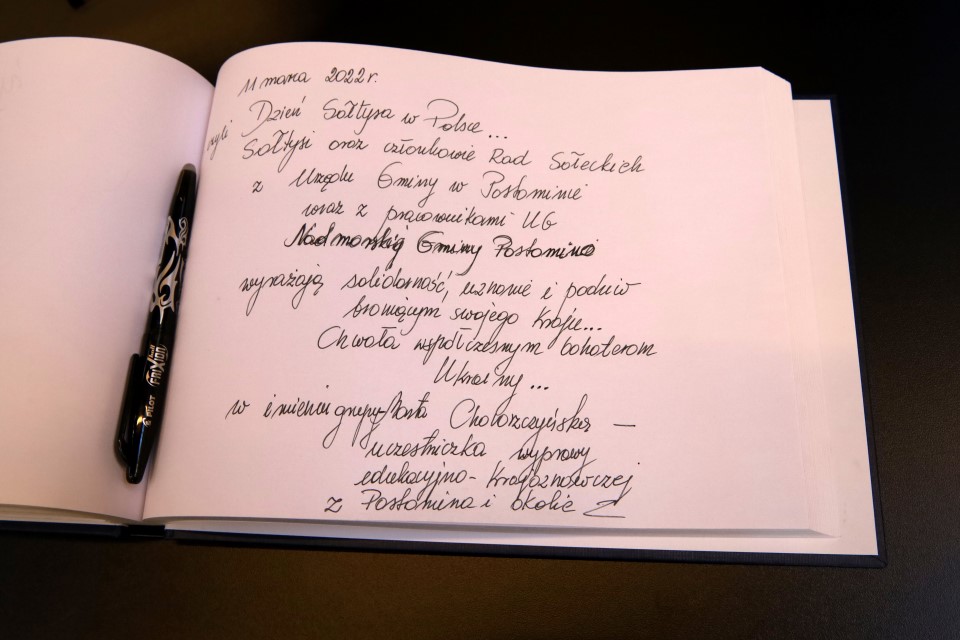 11 marca 2022 r.
Dzień Sołtysa w Polsce...
czyli Sołtysi oraz członkowie Rad Sołeckich
z Urzędu Gminy w Postominie
wraz z pracownikami UG
Nadmorskiej Gminy Postomino
wyrażają solidarność, uznanie i podziw
broniącym swojego Kraju...
Chwała współczesnym bohaterom
Ukrainy...
w imieniu grupy Marta —
uczestniczka wyprawy
edukacyjno-krajoznawczej
z Postomina i okolic
PILOT FRIXION ball